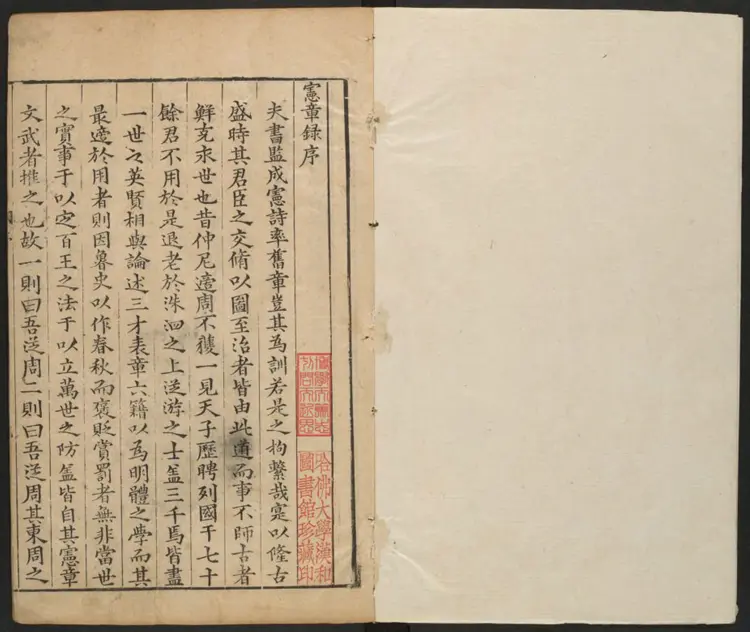 憲章録序
夫書監成憲詩率舊章豈其為訓若是之拘繫哉寔以隆古
盛時其君臣之交脩以圖至治者皆由此道而事不師古者
鮮克永世也昔仲尼遊周不獲一見天子歷聘列國干七十
餘君不用於是退老於洙泗之上從游之士盖三千焉皆盡
一世之英賢相與論述三才表章六籍以為明體之學而其
最適於用者則因魯史以作春秋而褒貶賞罰者無非當世
之實事于以定百王之法于以立萬世之防盖皆自其憲章
文武者推之也故一則曰吾從周二則曰吾從周其東周之
哈佛大學漢和
圖書館珍藏印